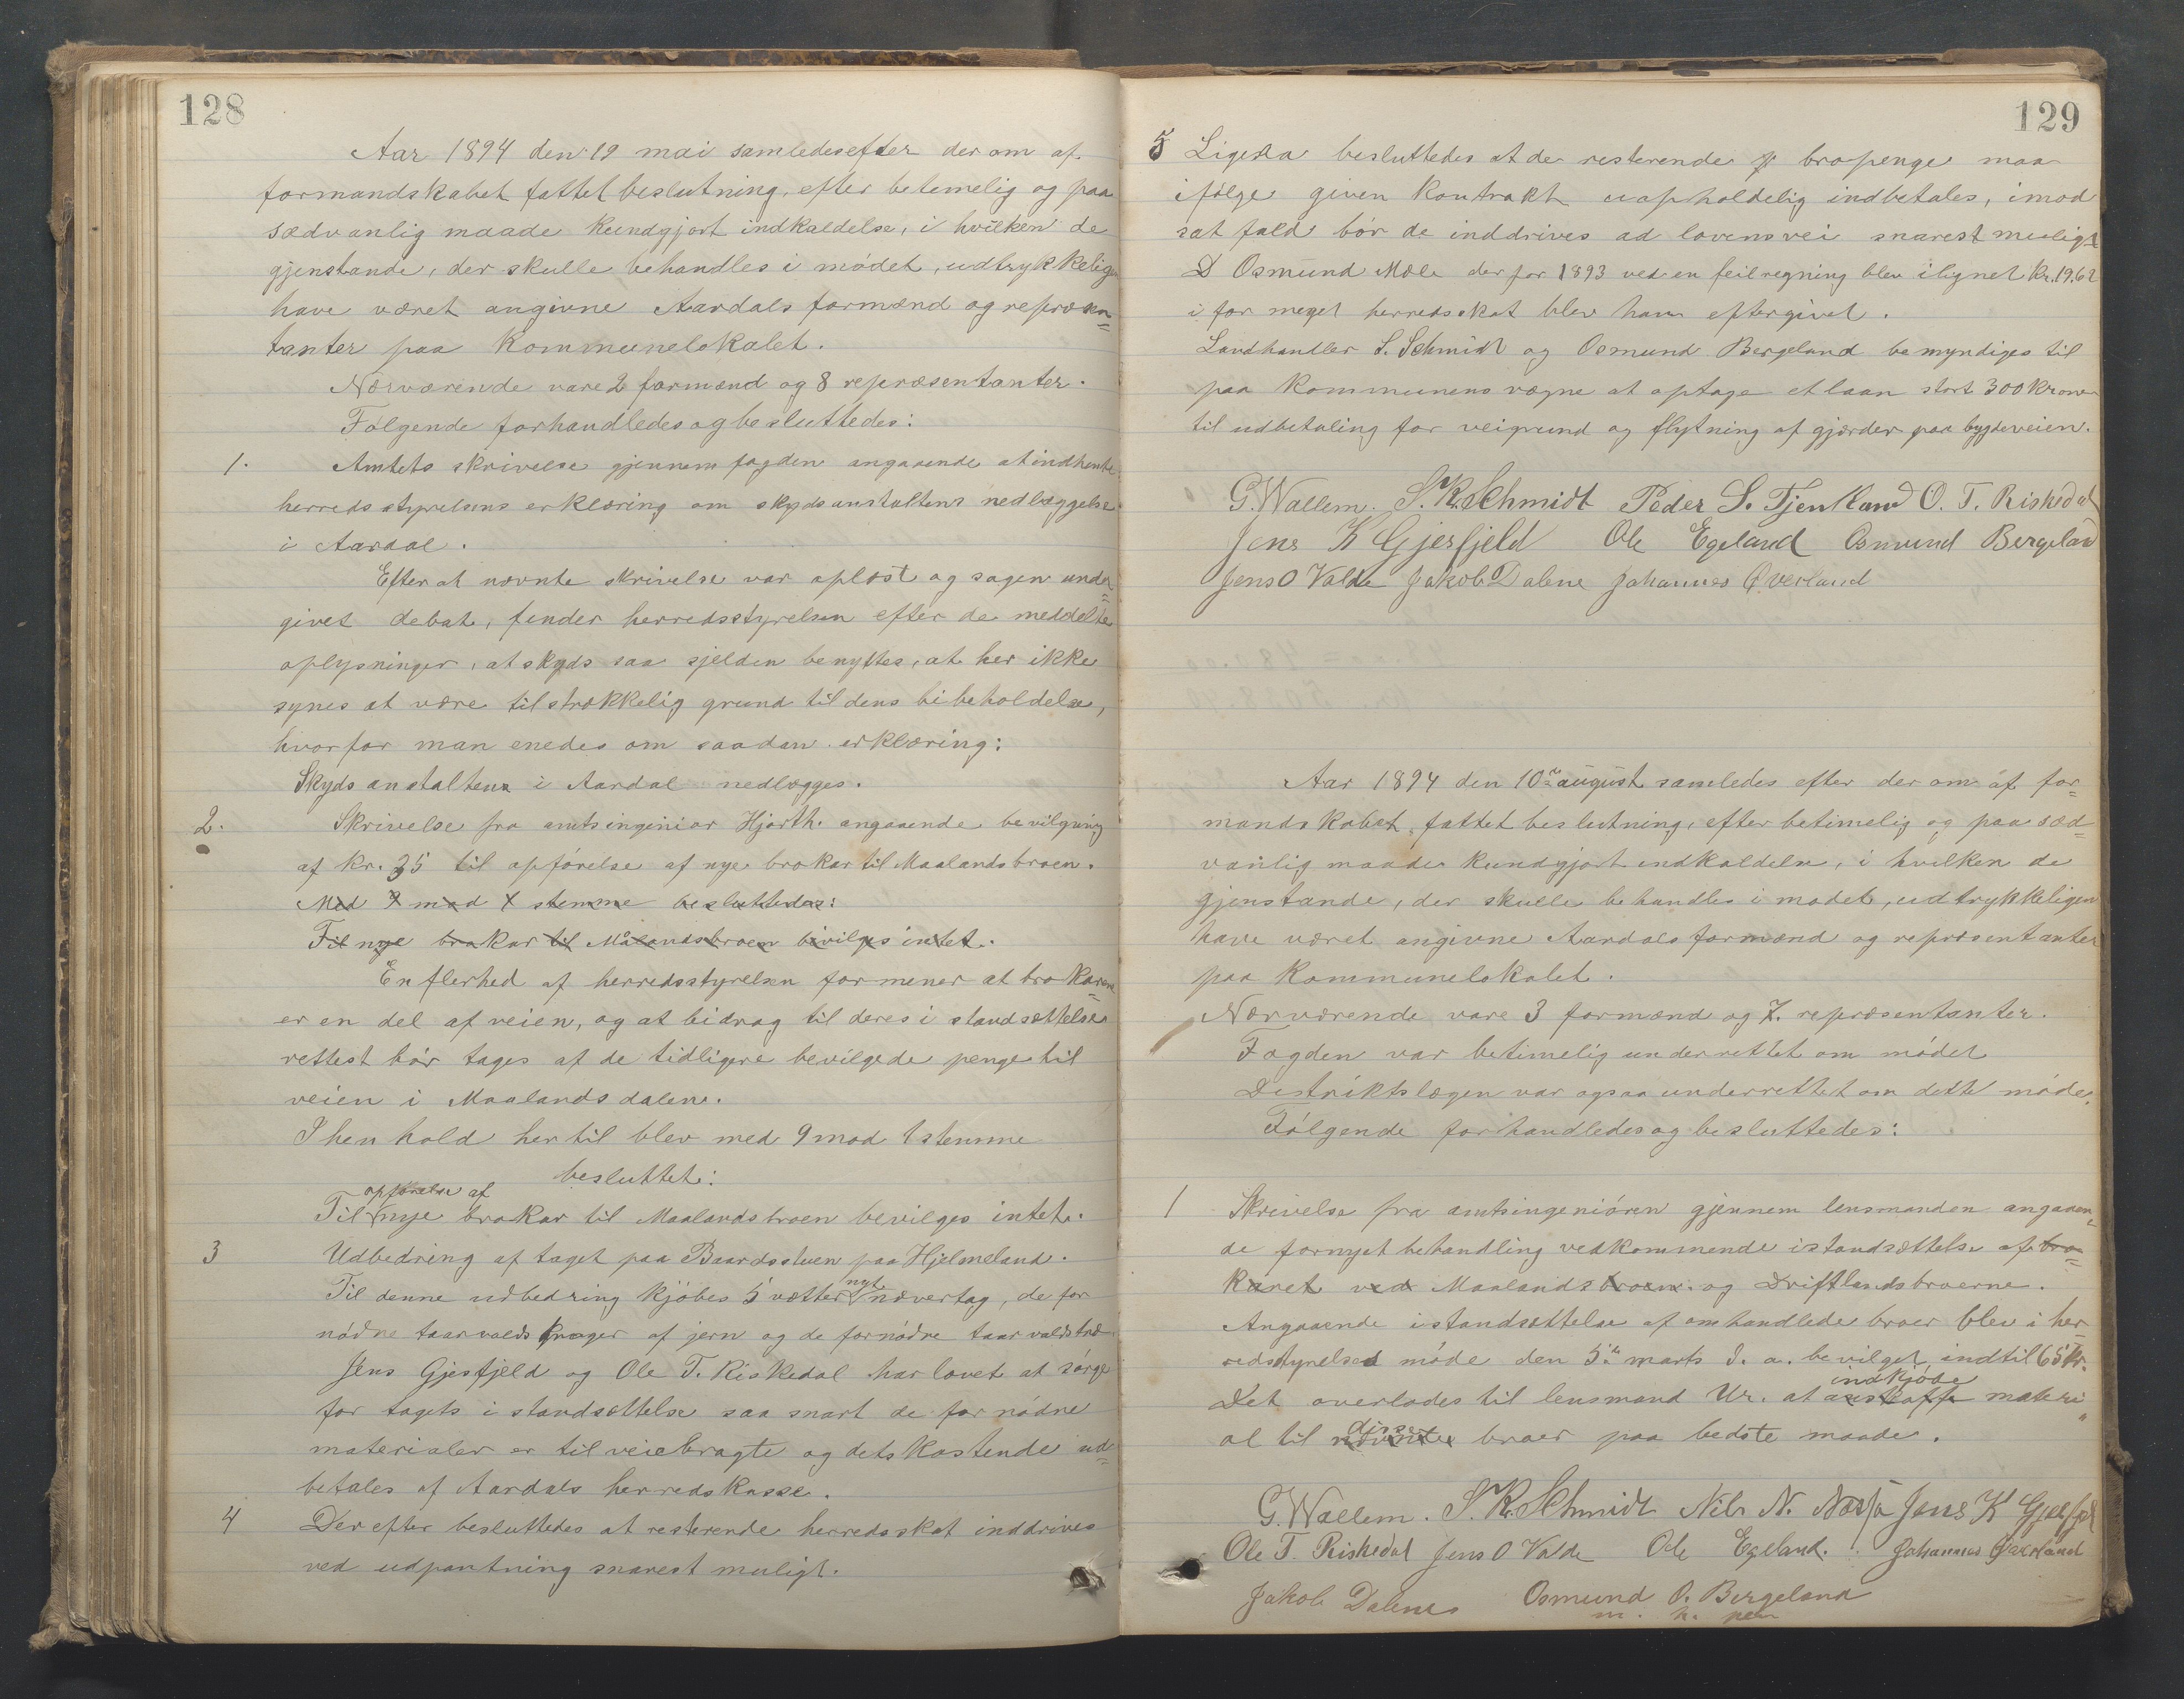 128
Aar 1894 den 19 mai samledes efter der om af
formandskabet fattet beslutning, efter betimelig og paa
sædvanlig maade kundgjort indkaldelse, i hvilken de
gjenstande, der skulle behandles i mödet, udtrykkeligen
have været angivne Aardals formænd og repræsen=
tanter paa Kommunelokalet.
Nærværende vare 2 formænd og 8 repræsentanter.
Følgende forhandledes og besluttedes:
1. Amtets skrivelse gjennem fogden angaaende at indhente
herredsstyrelsens erklæring om skydsanstaltens nedlæggelse
i Aardal.
Efter at nævnte skrivelse var oplæst og sagen under=
givet debat, finder herredsstyrelsen efter de meddelte
oplysninger, at skyds saa sjelden benyttes, at her ikke
synes at være tilstrækkelig grund til dens bibeholdelse,
hvorfor man enedes om saadan erklæring:
Skydsanstalten i Aardal nedlægges.
2. Skrivelse fra amtsingeniør Hjorth angaaende bevilgning
af Kr. 35 til opførelse af nye brokar til Maalandsbroen.
Med 9 mod 1 stemme besluttedes:
Til nye brokar til Målandsbroen bevilges intet.
En flerhed af herredsstyrelsen formener at brokarene=
er en del af veien, og at bidrag til deres istandsættelse
rettest bör tages af de tidligere bevilgede penge til
veien i Maalandsdalen.
I henhold hertil blev med 9 mod 1 stemme
besluttet:
opförelse af
Til nye brokar til Maalandsbroen bevilges intet.
3 Udbedring af taget paa Baardsstuen paa Hjelmeland.
nyt
Til denne udbedring kjöbes 5 vætter nævertag, de for
nödne taarvolds krager af jern og de fornödne taarvoldstræ
Jens Gjesfjeld og Ole T. Riskedal har lovet at sörge
for tagets istandsættelse saa snart de fornödne
materialer er tilveiebragte og dets kostende ud=
betales af Aardals herredskasse.
4 Derefter besluttedes at resterende herredsskat inddrives
ved udpantning snarest muligt.
129
5 Ligesaa besluttedes at de resterende bropenge maa
ifölge given Kontrakt uopholdelig indbetales, i mod
sat fald bör de inddrives ad lovens vei snarest muligt
Osmund Mæle der for 1893 ved en feilregning blev ilignet Kr. 19.62
i for meget herredsskat blev ham eftergivet.
Landhandler S. Schmidt og Osmund Bergeland bemyndiges til
paa Kommunens vegne at optage et laan stort 300 Kroner
til udbetaling for veigrund og flytning af gjærder paa bygdeveien.
G. Wallem. S. K. Schmidt Peder S. Tjentland O. T. Riskedal
Jens K Gjesfjeld Ole Egeland Osmund Bergeland
Jens O Valde Jakob Dalene Johannes Överland
Aar 1894 den 10de august samledes efter der om af for=
mandskabet fattet beslutning, efter betimelig og paa sæd=
vanlig maade kundgjort indkaldelse, i hvilken de
gjenstande, der skulle behandles i mödet, udtrykkeligen
have været angivne Aardals formænd og repræsentanter
paa Kommunelokalet.
Nærværende vare 3 formænd og 7. repræsentanter.
Fogden var betimelig underrettet om mödet
Distriktslægen var ogsaa underrettet om dette möde.
Følgende forhandledes og besluttedes:
1 Skrivelse fra amtsingeniören gjennem lensmanden angaaen=
de fornyet behandling vedkommende istandsættelse af bro=
karet ved Maalandsbroen. og Driftlandsbroerne.
Angaaende istandsættelse af omhandlede broer blev i her=
redsstyrelses möde den 5te marts d. a. bevilget indtil 65 kr.
indkjöbe
Det overlades til lensmand Ur. at anskaffe materi=
disse
al til nævnte broer paa bedste maade.
G. Wallem. S. K. Schmidt Nils N. Jens K Gjesfjel
Ole T. Riskedal Jens O Valde Ole Egeland. Johannes Överland
Jakob Dalene Osmund O. Bergeland
m. h. pen